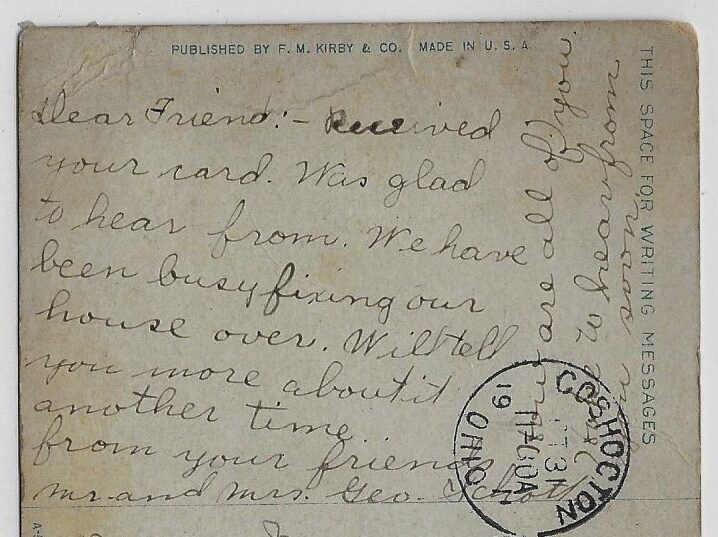 PUBLISHED BY F. M. KIRBY & CO. MADE IN U. S. A.
THIS SPACE FOR WRITING MESSAGES
Dear Friend:- Received
your card. Was glad
to hear from. We have
been busy fixing our
house over. Will tell
you more about it
another time
from your friends
Mr. and Mrs. Geo. Schott
are all of you.
to hear from
soon
COSHOCTON
OHIO
19